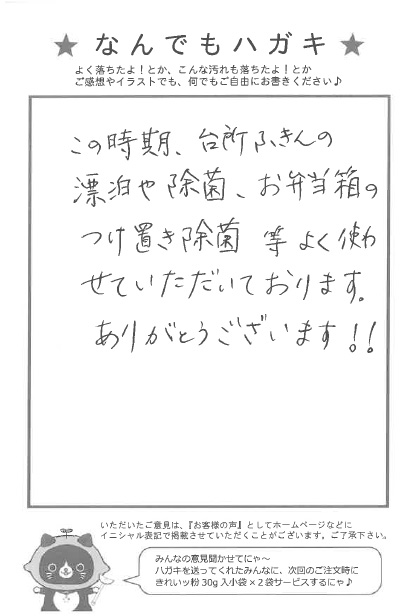 ★ なんでもハガキ ★
よく落ちたよ！とか、こんな汚れも落ちたよ！とか
ご感想やイラストでも、何でもご自由にお書きください♪
この時期、台所ふきんの
漂泊や除菌、お弁当箱の
つけ置き除菌 等よく使わ
せていただいております。
ありがとうございます!!
いただいたご意見は、『お客様の声』としてホームページなどに
イニシャル表記で掲載させていただくことがございます。ご了承下さい。
みんなの意見聞かせてにゃ〜
ハガキを送ってくれたみんなに、次回のご注文時に
きれいッ粉 30g 入小袋×２袋サービスするにゃ♪